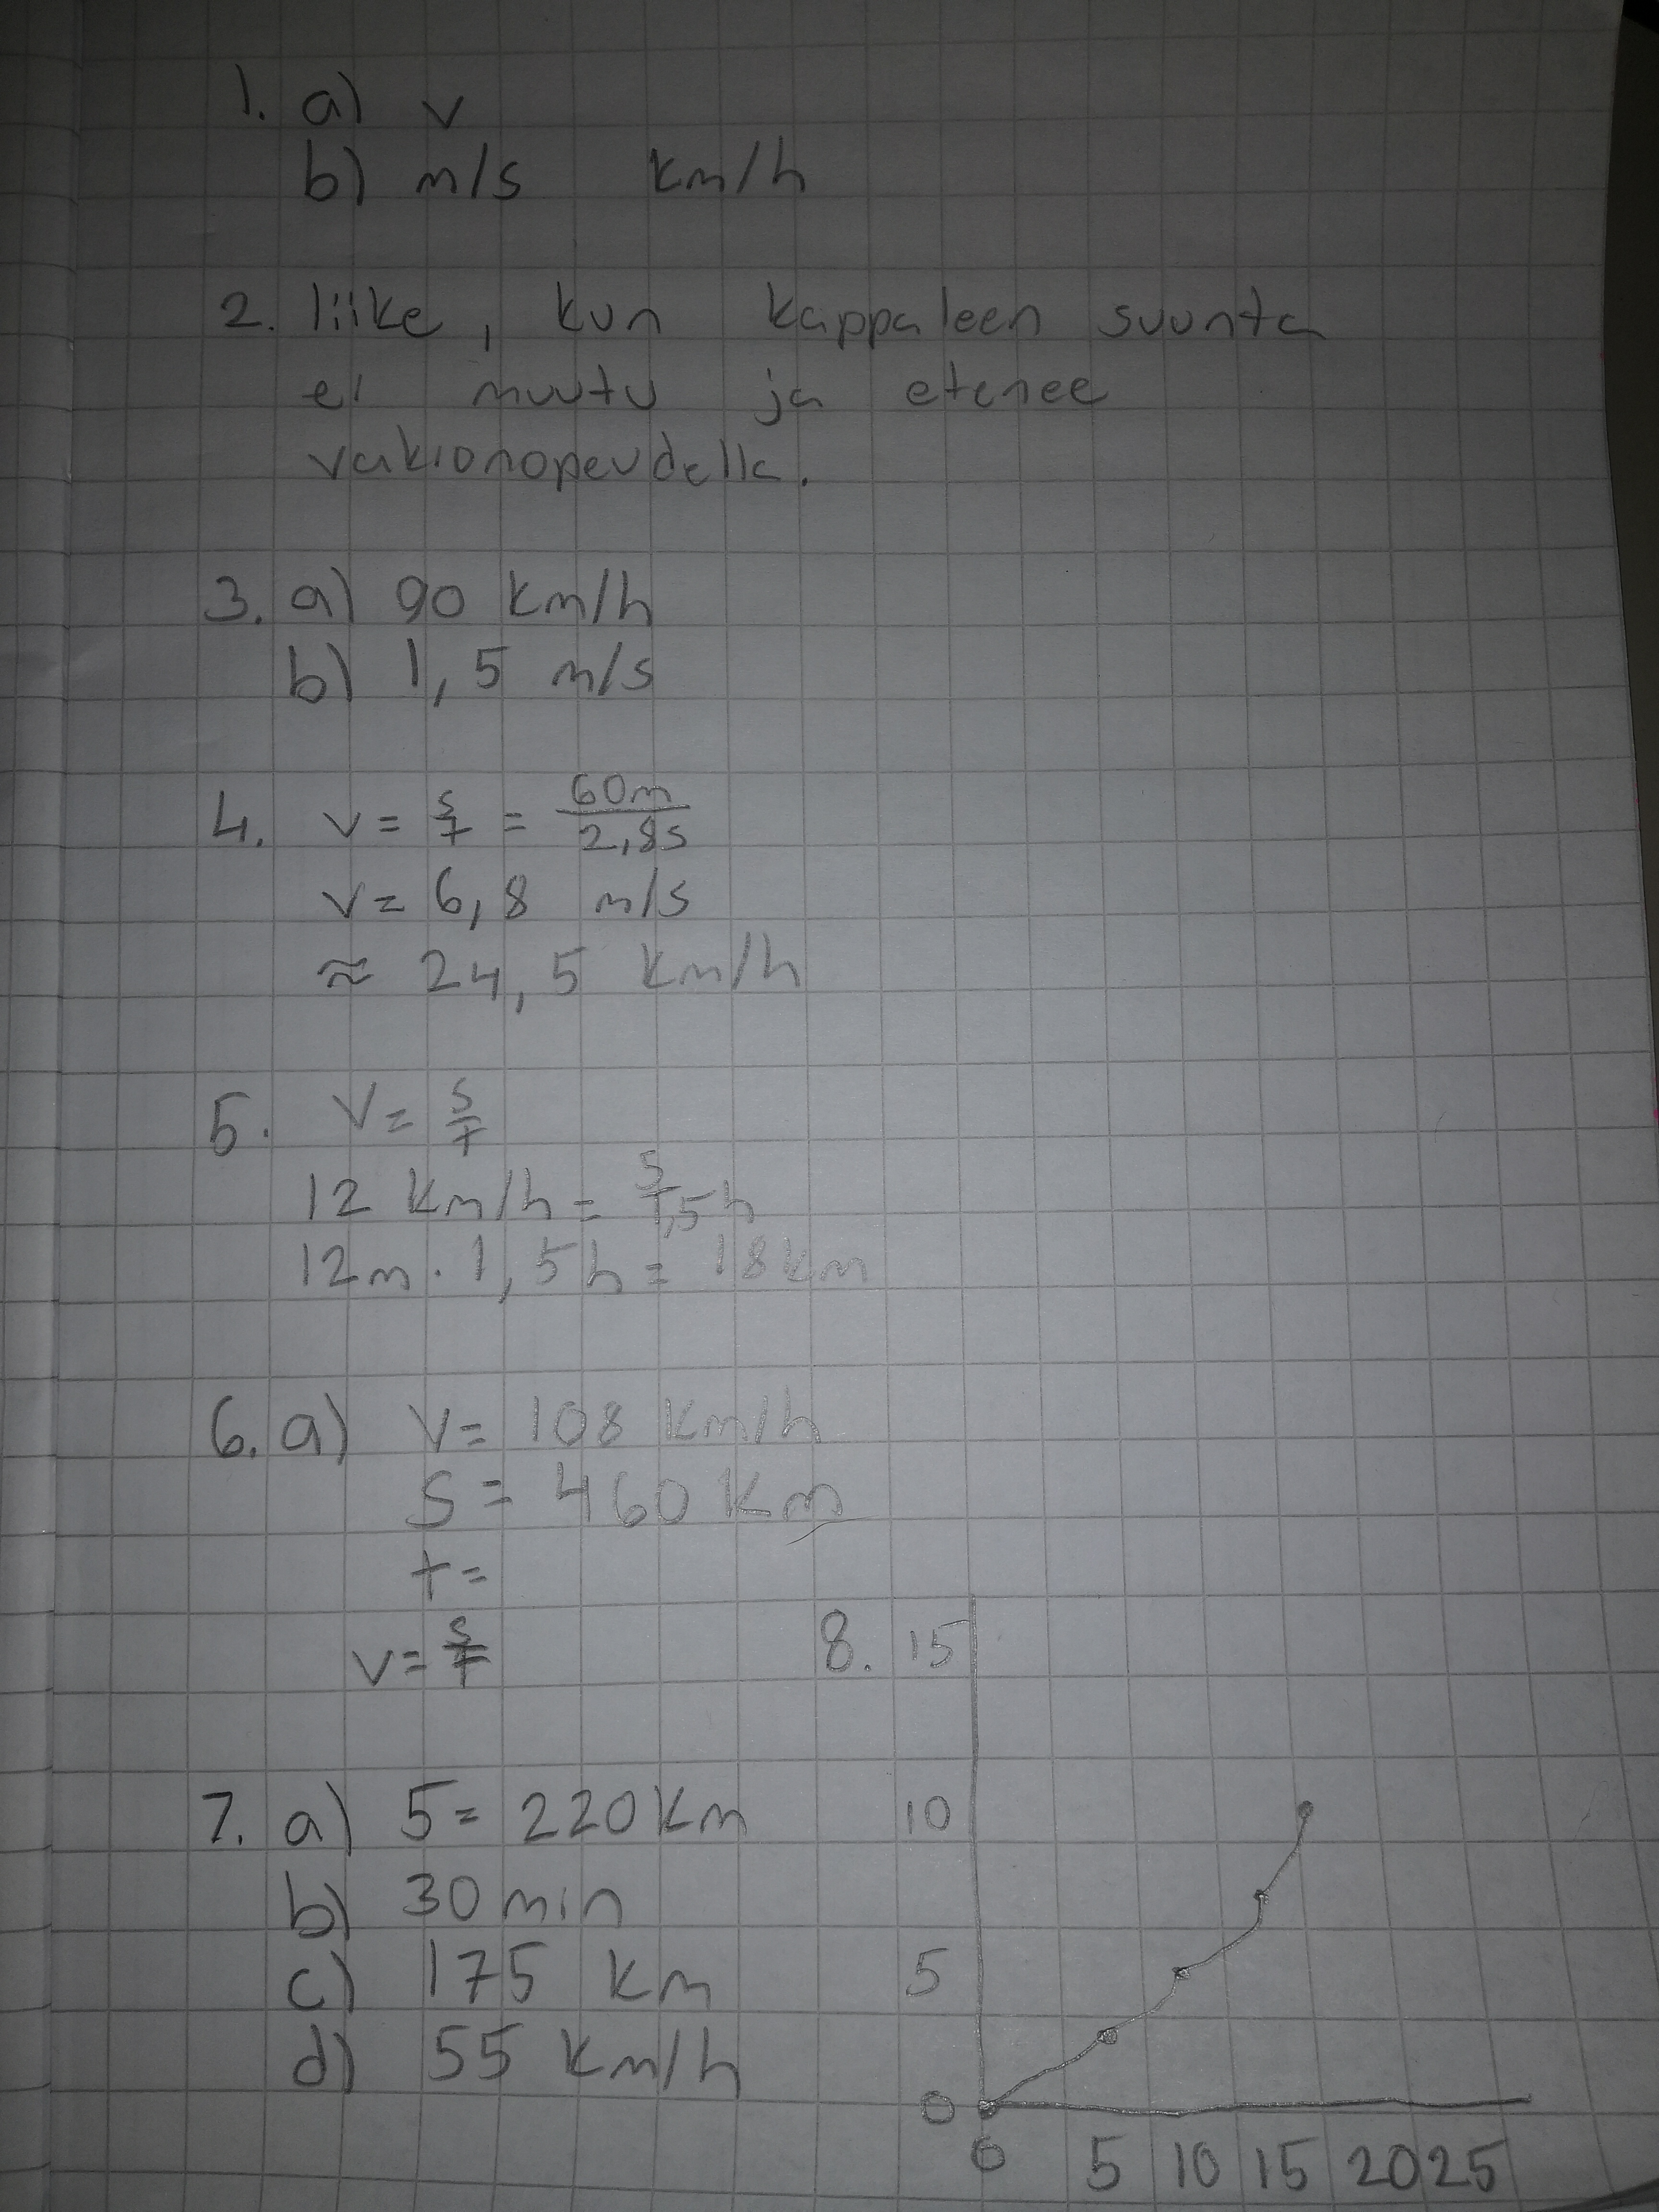 1. a) v
b) m/s km/h
2. liike, kun kappaleen suunta
ei muutu ja etenee
vakionopeudella.
3. a) 90 km/h
b) 1,5 m/s
4. v = s/t = 60m/2,8s
v = 6,8 m/s
≈ 24,5 km/h
5. v = s/t
12 km/h = s/1,5h
12m · 1,5h = 18km
6. a) v = 108 km/h
s = 460 km
t =
v = s/t
7. a) s = 220 km
b) 30 min
c) 175 km
d) 55 km/h
8. 15
10
5
0
0 5 10 15 20 25